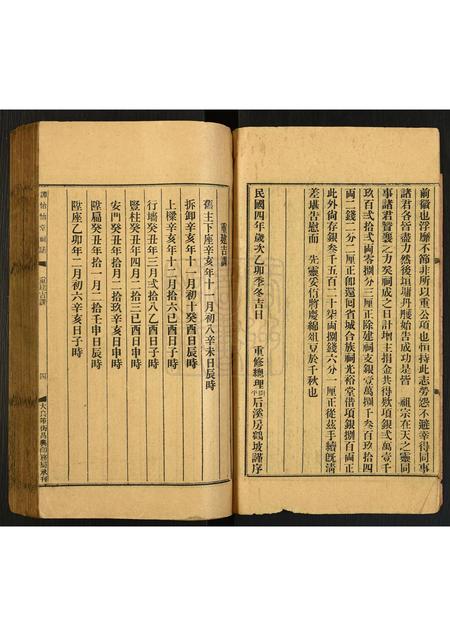 前徽也浮靡不節非所以重公項也恒持此志勞怨不避幸得同事
諸君各皆盡力然後垣墉丹雘始告成功是皆 祖宗在天之靈同
事諸君贊襄之力矣祠成之日計增主捐金共得欵項銀弍萬壹千
玖百弍拾弍両零捌分三厘正除建祠支銀壹萬捌千叁百玖拾四
両二錢二分二厘正卸還囘省城合族祠光裕堂借項銀捌百両正
此外尚存銀叁千五百二十柒両捌錢六分一厘正從茲手續既清
差堪告慰而 先靈妥侑將慶綿俎豆於千秋也
民國四年歲次乙卯季冬吉日 重修總理 后溪房鶴坡謹序
重建吉課
舊主下座辛亥年十一月初八辛未日辰時
拆卸辛亥年十一月初十癸酉日辰時
上樑辛亥年十二月拾六己酉日子時
行墻癸丑年三月弍拾八乙酉日子時
豎柱癸丑年四月二拾三己酉日申時
安門癸丑年拾月二拾玖辛亥日申時
陞扁癸丑年拾一月二拾壬申日辰時
陞座乙卯年二月初六辛亥日子時
譚怡怡堂祠誌
重建吉課
四